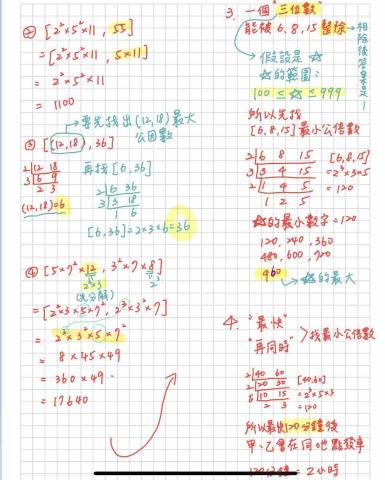 ② [2²×5²×11, 55]
=[2²×5²×11, 5×11]
= 2²×5²×11
= 1100
要先找出(12,18)最大公因數
③ [(12,18), 36]
2 12 18
3 6 9
2 3
(12,18)=6
再找[6,36]
2 6 36
3 3 18
1 6
[6,36]=2×3×6=36
④ [5×7²×12, 3²×7×8]
2²×3
2³
(先分解)
=[2²×3×5×7², 2³×3²×7]
= 2³×3²×5×7²
= 8×45×49
= 360×49
= 17640
3. 一個"三位數"
能被6,8,15整除
→假設是☆
☆的範圍:
100≤☆≤999
所以先找
[6,8,15]最小公倍數
2 6 8 15 [6,8,15]
3 3 4 15 =2³×3×5
1 4 5 =120
1 2 5
☆的最小數字=120
120, 240, 360
480, 600, 720
960 →☆的最大
4. "最快"
"再同時" >找最小公倍數
2 40 60 [40,60]
2 20 30
5 10 15
2 3 =120
所以最快120分鐘後
甲、乙會在同地點發車
120分鐘=2小時